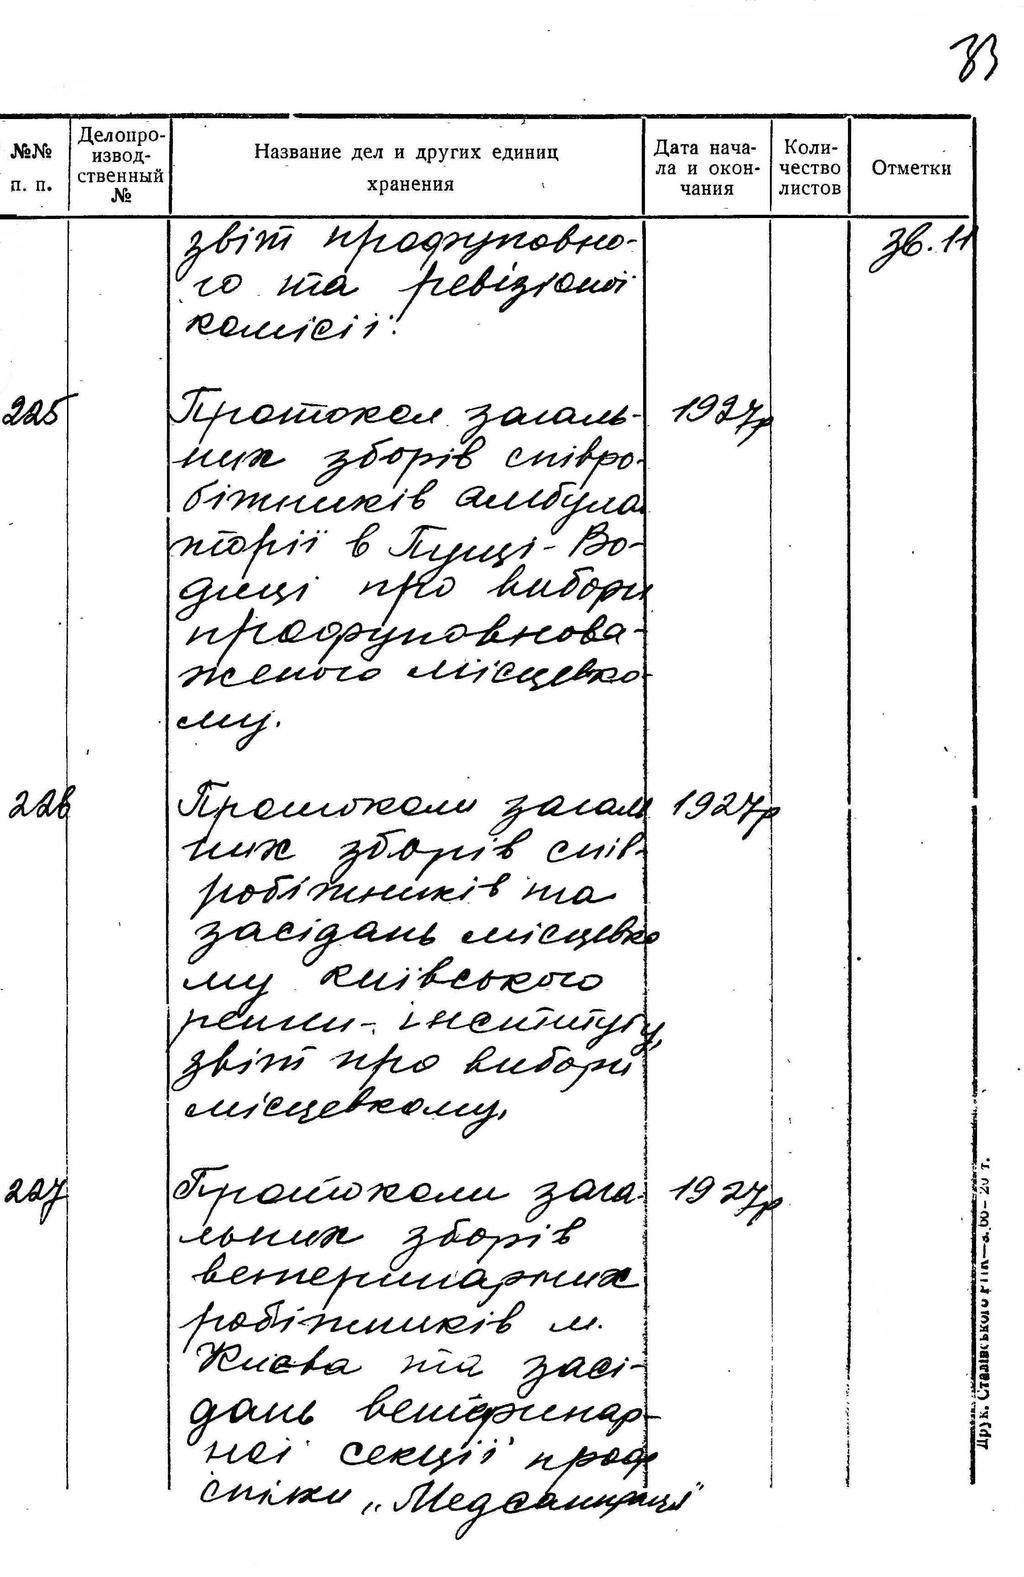 33
№№ п. п.
Делопро-
извод-
ственный
№
Название дел и других единиц
хранения
Дата нача-
ла и окон-
чания
Коли-
чество
листов
Отметки
звіт профуповно-
го та ревізіоної
комісії.
зв. 11
225
Протокол загаль-
них зборів співро-
бітників амбула
торії в Пущі-Во-
диці про вибори
профуповнова-
женого місцевко-
му.
1927р
226
Протоколи загал
них зборів спів-
робітників та
засідань місцевко
му київського
рентг-інституту,
звіт про вибори
місцевкому,
1927р
227
Протоколи зага-
льних зборів
ветеринарних
робітників м.
Києва та засі-
дань ветеринар-
ної секції проф
спілки „Медсанпраця"
1927р
Друк. Сталінського РПК—